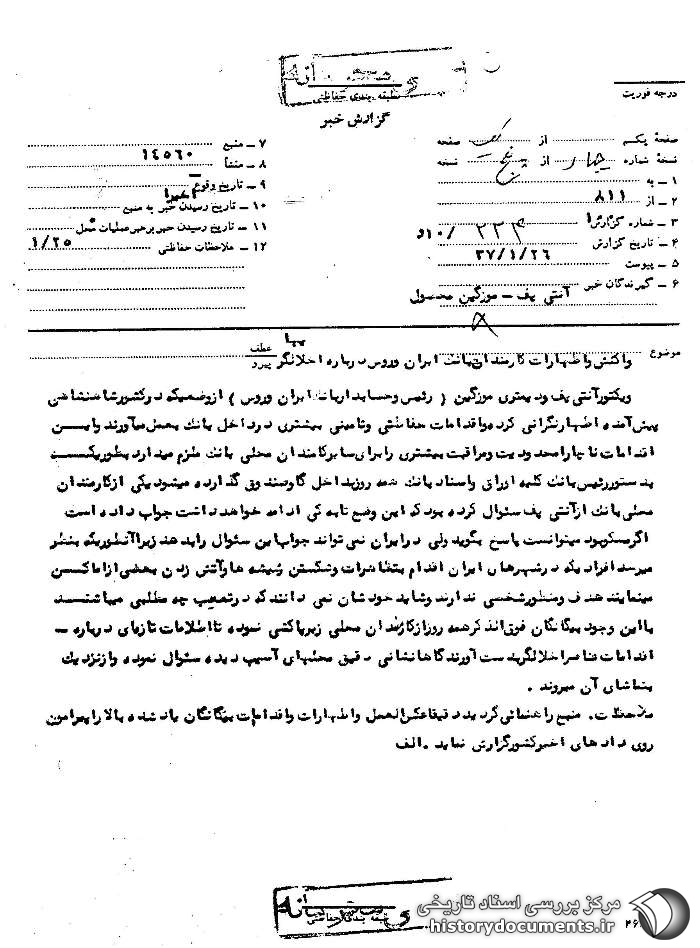 طبقه بندی حفاظتی
گزارش خبر
درجه فوریت
صفحهٔ یکم از یک صفحه
نسخهٔ شماره چهار از پنج نسخه
۱ ـ به
۲ ـ از ۸۱۱
۳ ـ شماره گزارش
۴ ـ تاریخ گزارش ۳۷/۱/۲۶
۵ ـ پیوست
۶ ـ گیرندگان خبر
آنتی پف ـ موزگین محسول
۷ ـ منبع ۱۴۵۶۰
۸ ـ منشأ
۹ ـ تاریخ وقوع اخیرا
۱۰ ـ تاریخ رسیدن خبر به منبع
۱۱ ـ تاریخ رسیدن خبر برهبر عملیات محل
۱۲ ـ ملاحظات حفاظتی ۱/۲۵
موضوع واکنش و اظهارات کارمندان بانک ایران وروس درباره اخلالگر عطف پیرو
ویکتور آنتی پف ودیمتری موزگین ( رئیس وحسابدار بانک ایران وروس ) ازوضعیکه درکشورشاهنشاهی
پیش آمده اظهارنگرانی کرده واقدامات حفاظتی وتامینی بیشتری درداخل بانک بعمل میآورند واین
اقدامات ناچارا محدودیت ومراقبت بیشتری را برای سایرکامندان محلی بانک ملزم میدارد بطوریکه
بدستوررئیس بانک کلیه اوراق واسناد بانک همه روزبداخل گاوصندوق گذارده میشود یکی ازکارمندان
محلی بانک ازآنتی پف سئوال کرده بود که این وضع تابه کی ادامه خواهد داشت جواب داده است
اگرمسکوبود میتوانست پاسخ بگوید ولی درایران نمی تواند جواب این سئوال رابدهد زیراآنطوریکه بنظر
میرسد افراد یکه درشهرهای ایران اقدام بتظاهرات وشکستن شیشه ها وآتش زدن بعضی ازاماکن
مینمایند هدف ومنظورشخصی ندارند وشاید خودشان نمی دانند که درتعقیب چه مطلبی میباشند
بااین وجود بیگانگان فوق الذکرهمه روزازکارمندان محلی زیرپاکشی نموده تااطلاعات تازه ای درباره ـ
اقدامات عناصراخلالگربدست آورند گاها نشانی دقیق محلهای آسیب دیده سئوال نموده وازنزدیک
بتماشای آن میروند .
ملاحظات. منبع راهنمائی گردید دقیقا عکس العمل واظهارات واقدامات بیگانگان یاد شده بالا راپیرامون
روی دادهای اخیرکشورگزارش نماید . الف
طبقه بندی حفاظتی
مرکز بررسی اسناد تاریخی
historydocuments.ir